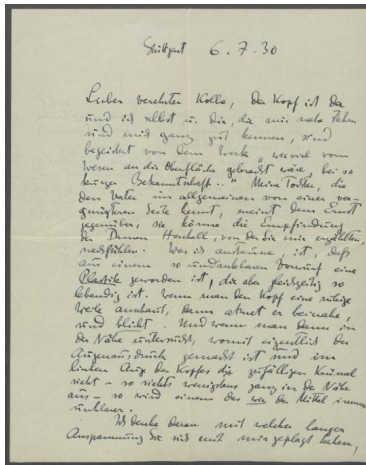 Stuttgart 6.7.30
Lieber verehrter Kolbe, der Kopf ist da
und ich selbst u. die, die mir nahe stehen
und mich ganz gut kennen, sind
begeistert von dem Werke „wieviel vom
Wesen an die Oberfläche gebracht wäre, bei so
kurzer Bekanntschaft.." Meine Tochter, die
den Vater im allgemeinen von einer ver-
gnügteren Seite kennt, meint dem Ernst
gegenüber, sie könne die Empfindung
der Damen Henkell, von der Sie mir erzählten,
nachfühlen. Was ich anstaune, ist, daß
aus einem so undankbaren Vorwurf eine
Plastik geworden ist, die aber gleichzeitig so
lebendig ist. Wenn man den Kopf eine ruhige
Weile anschaut, dann atmet er beinahe,
und blickt. Und wenn man dann in
der Nähe untersucht, womit eigentlich der
Augenausdruck gemacht ist und im
linken Auge des Kopfes die zufälligen Krümel
sieht – so sieht's wenigstens ganz in der Nähe
aus – so wird einem das wie der Mittel immer
unklarer.
Ich denke daran mit welcher langer
Anspannung Sie sich mit mir geplagt haben,